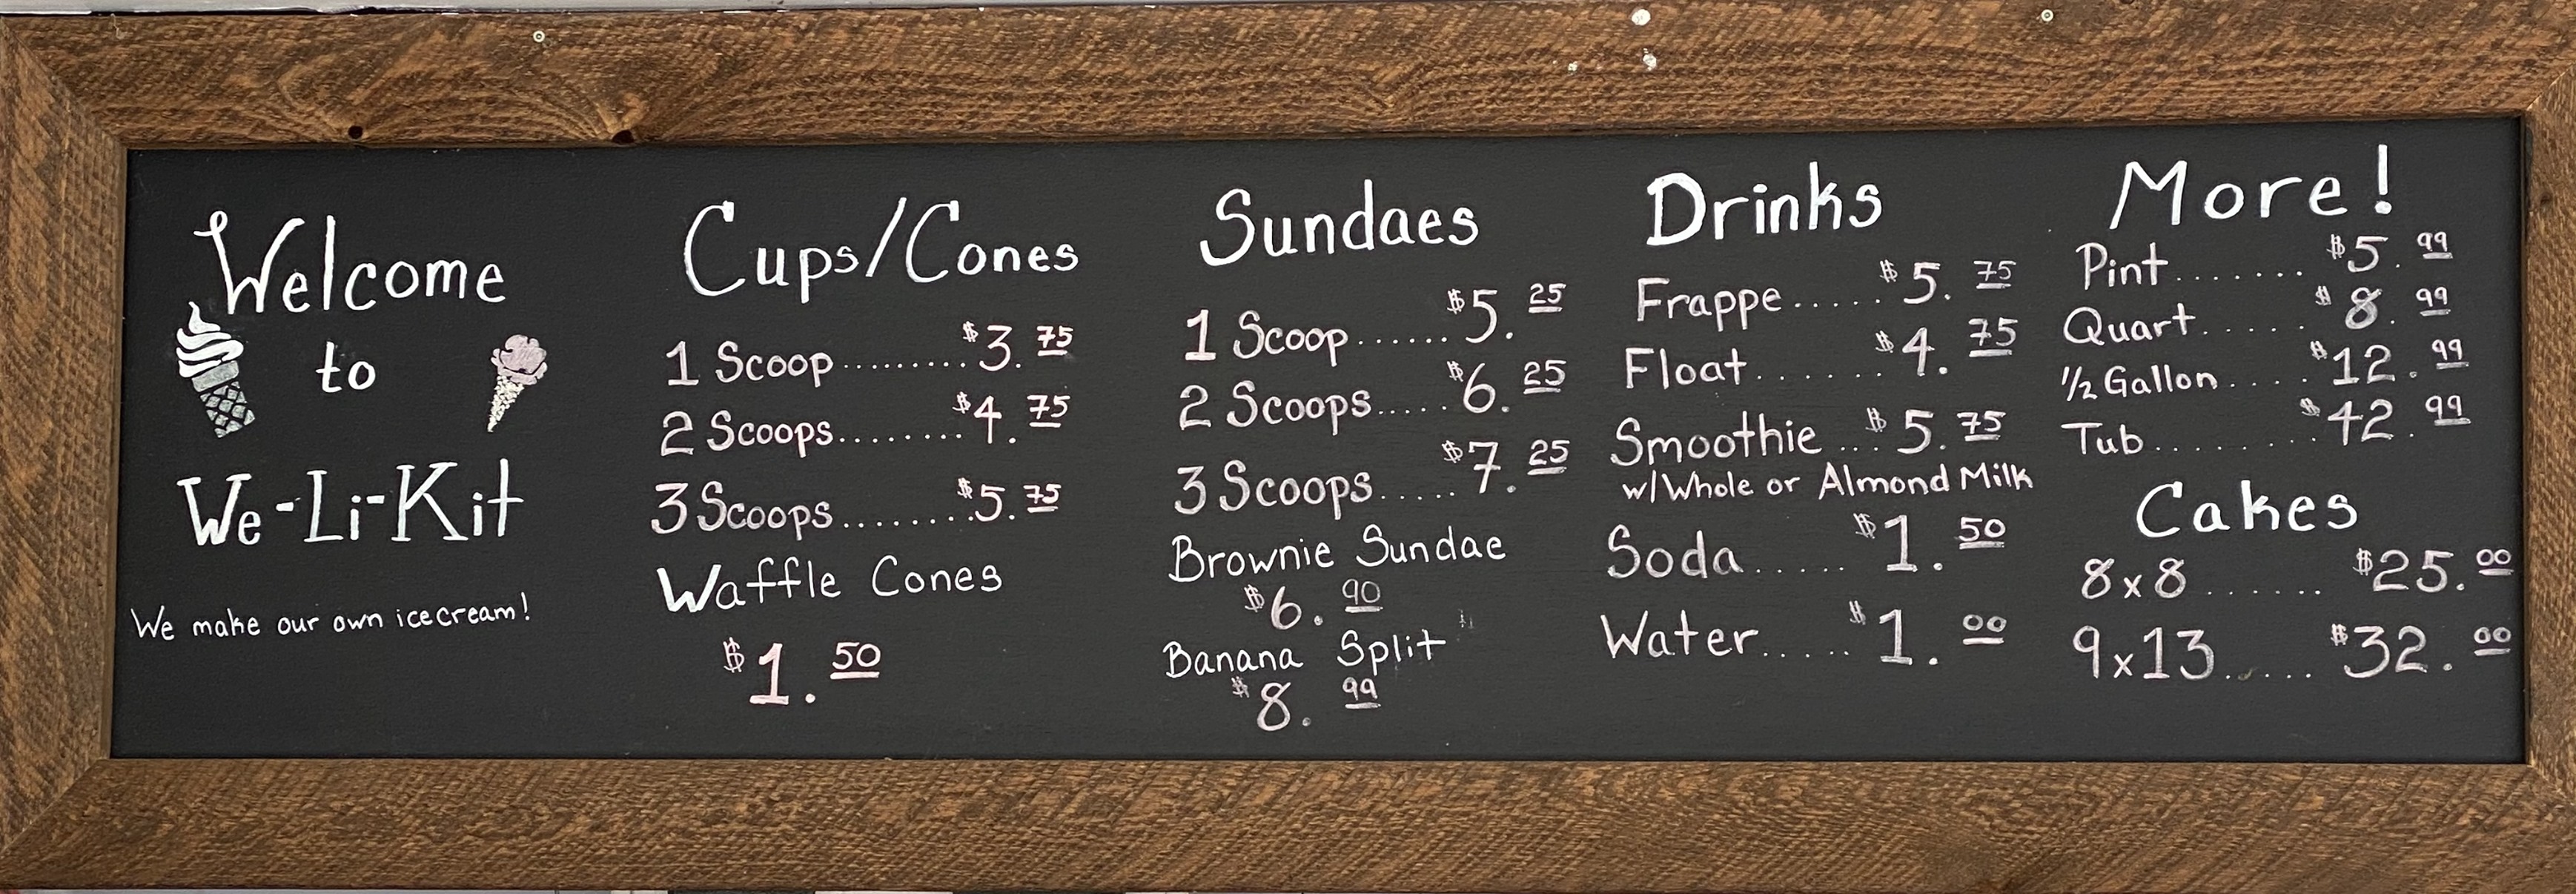 Welcome
to
We-Li-Kit
We make our own icecream!
Cups/Cones
1 Scoop.........$3.75
2 Scoops.........$4.75
3 Scoops.........$5.75
Waffle Cones
$1.50
Sundaes
1 Scoop......$5.25
2 Scoops.....$6.25
3 Scoops.....$7.25
Brownie Sundae
$6.90
Banana Split
$8.99
Drinks
Frappe.....$5.75
Float.......$4.75
Smoothie...$5.75
w/Whole or Almond Milk
Soda......$1.50
Water.....$1.00
More!
Pint.......$5.99
Quart.....$8.99
1/2 Gallon....$12.99
Tub........$42.99
Cakes
8x8......$25.00
9x13......$32.00